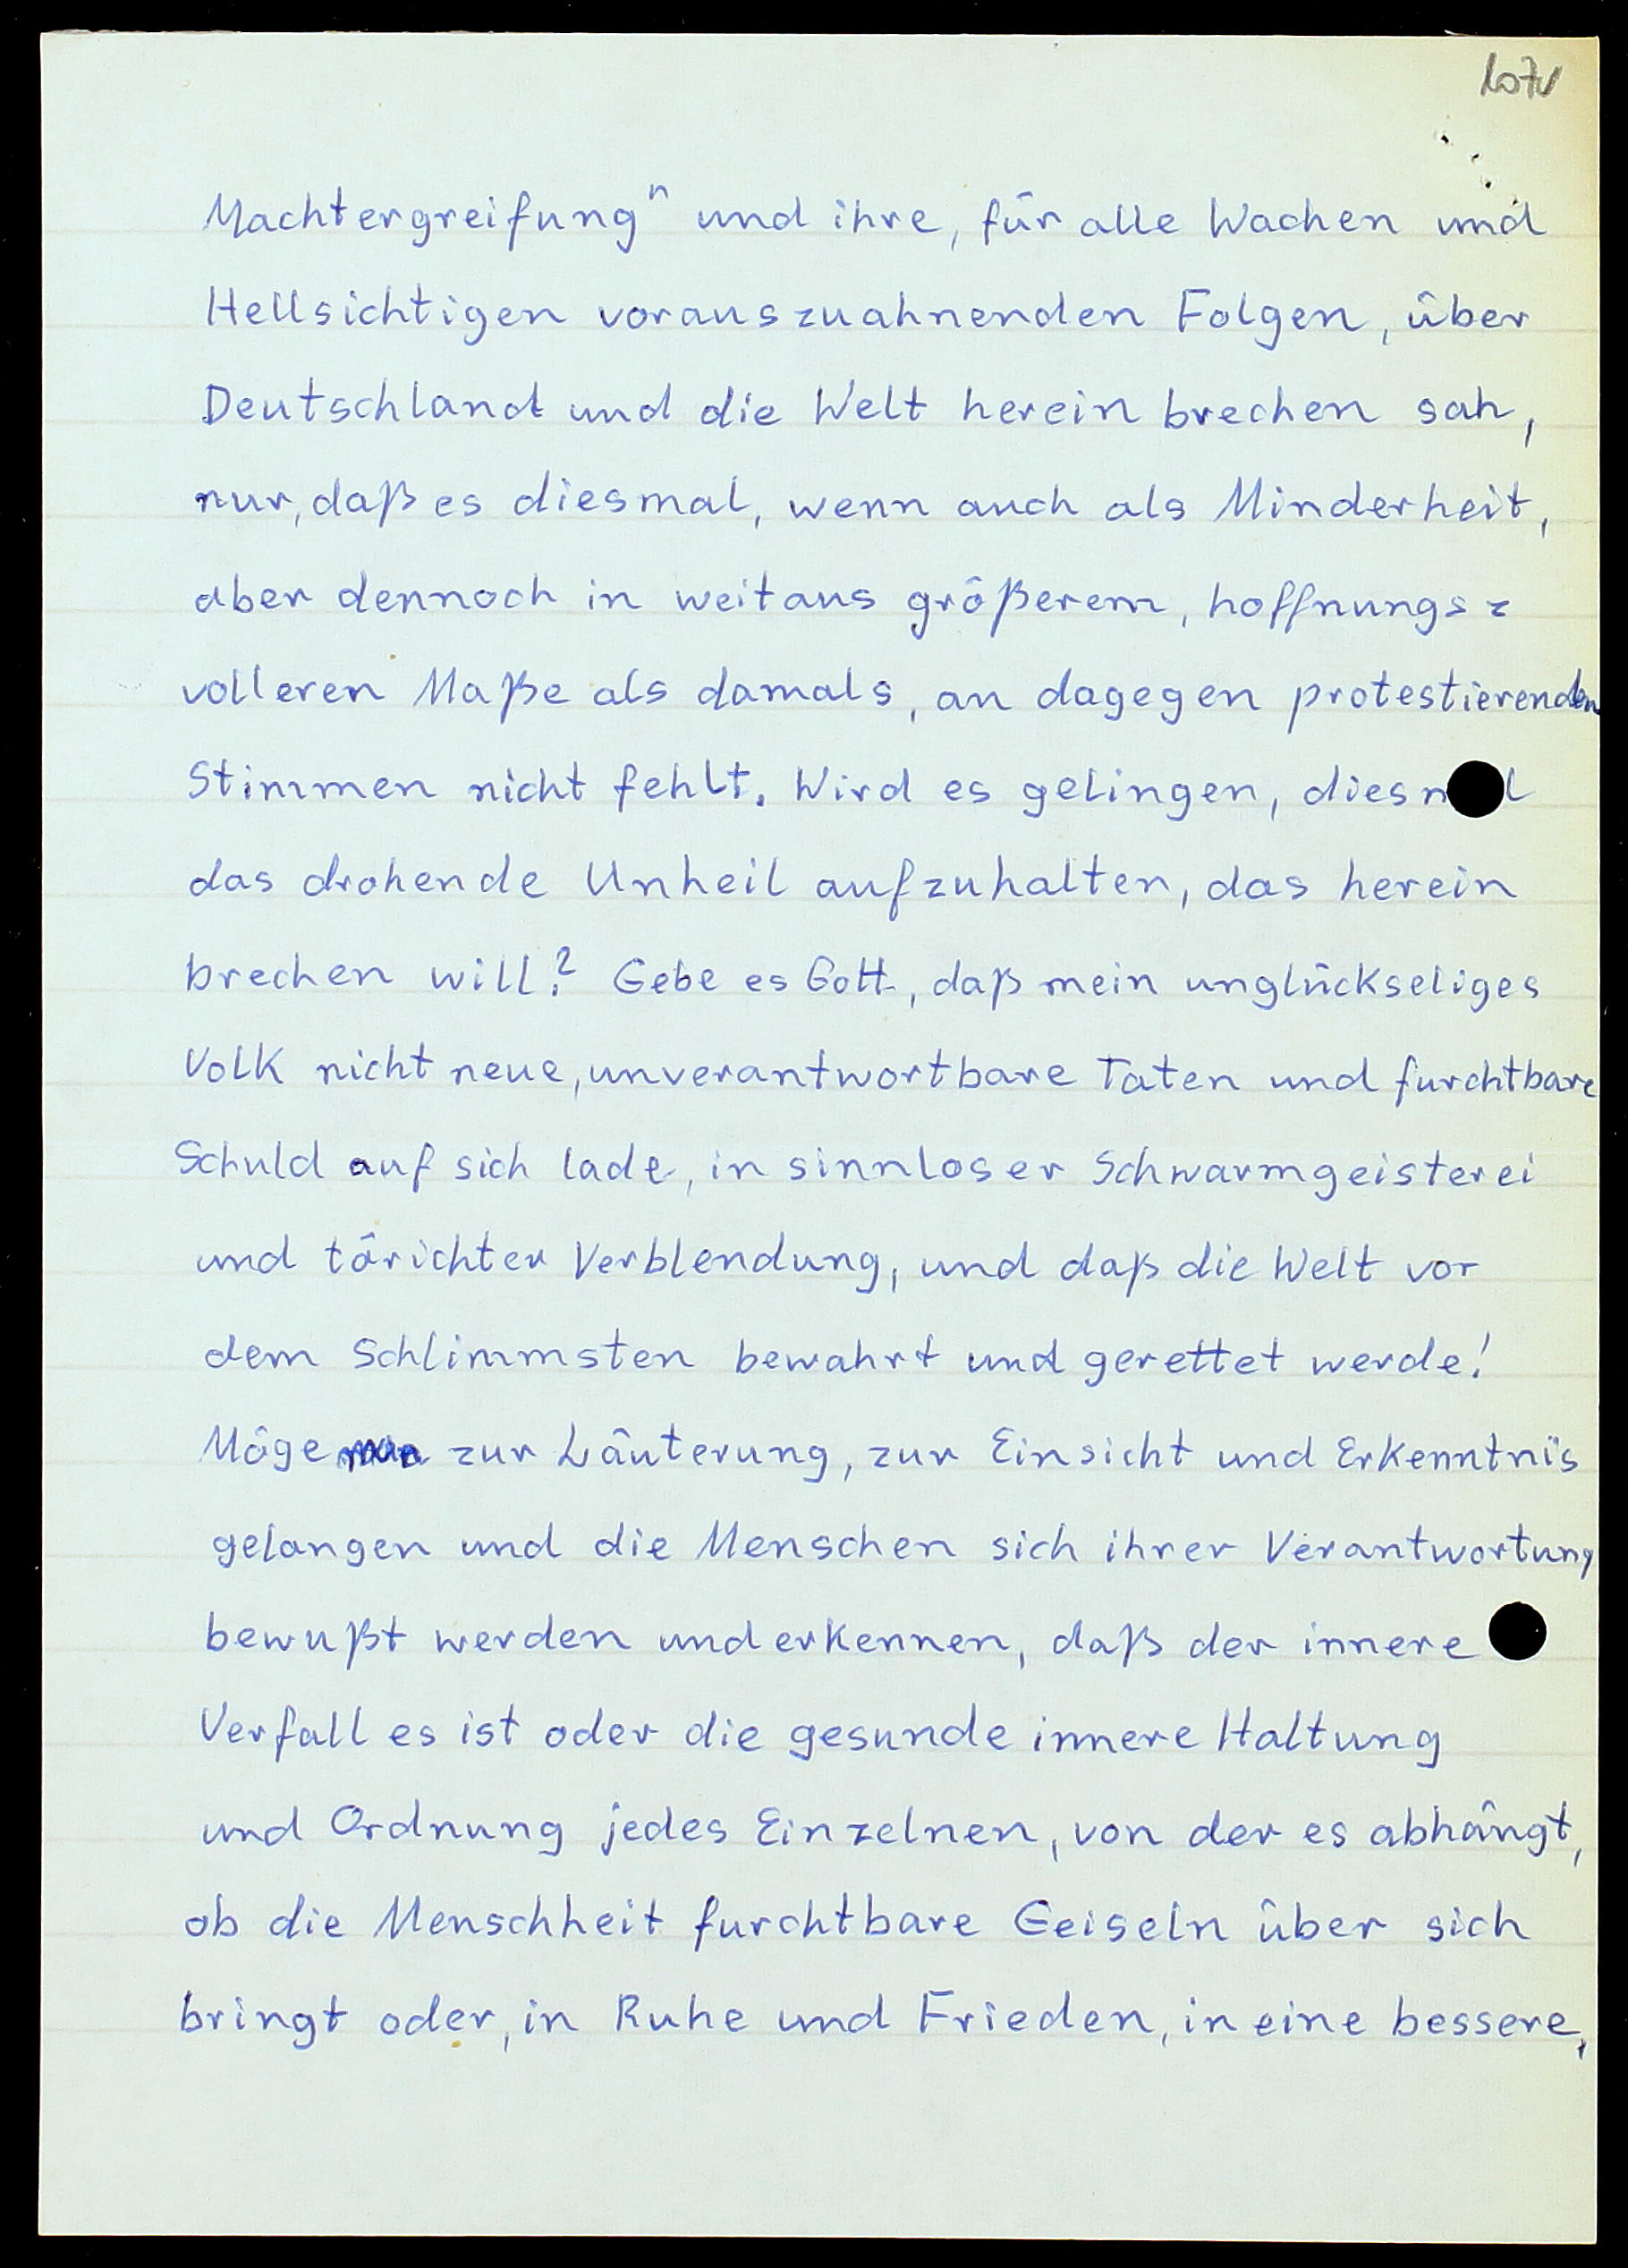 107v
Machtergreifung" und ihre, für alle Wachen und
Hellsichtigen vorauszuahnenden Folgen, über
Deutschland und die Welt herein brechen sah,
nur, daß es diesmal, wenn auch als Minderheit,
aber dennoch in weitaus größerem, hoffnungs=
volleren Maße als damals, an dagegen protestierenden
Stimmen nicht fehlt. Wird es gelingen, diesmal
das drohende Unheil aufzuhalten, das herein
brechen will? Gebe es Gott, daß mein unglückseliges
Volk nicht neue, unverantwortbare Taten und furchtbare
Schuld auf sich lade, in sinnloser Schwarmgeisterei
und törichter Verblendung, und daß die Welt vor
dem Schlimmsten bewahrt und gerettet werde!
Möge zur Läuterung, zur Einsicht und Erkenntnis
gelangen und die Menschen sich ihrer Verantwortung
bewußt werden und erkennen, daß der innere
Verfall es ist oder die gesunde innere Haltung
und Ordnung jedes Einzelnen, von der es abhängt,
ob die Menschheit furchtbare Geiseln über sich
bringt oder, in Ruhe und Frieden, in eine bessere,